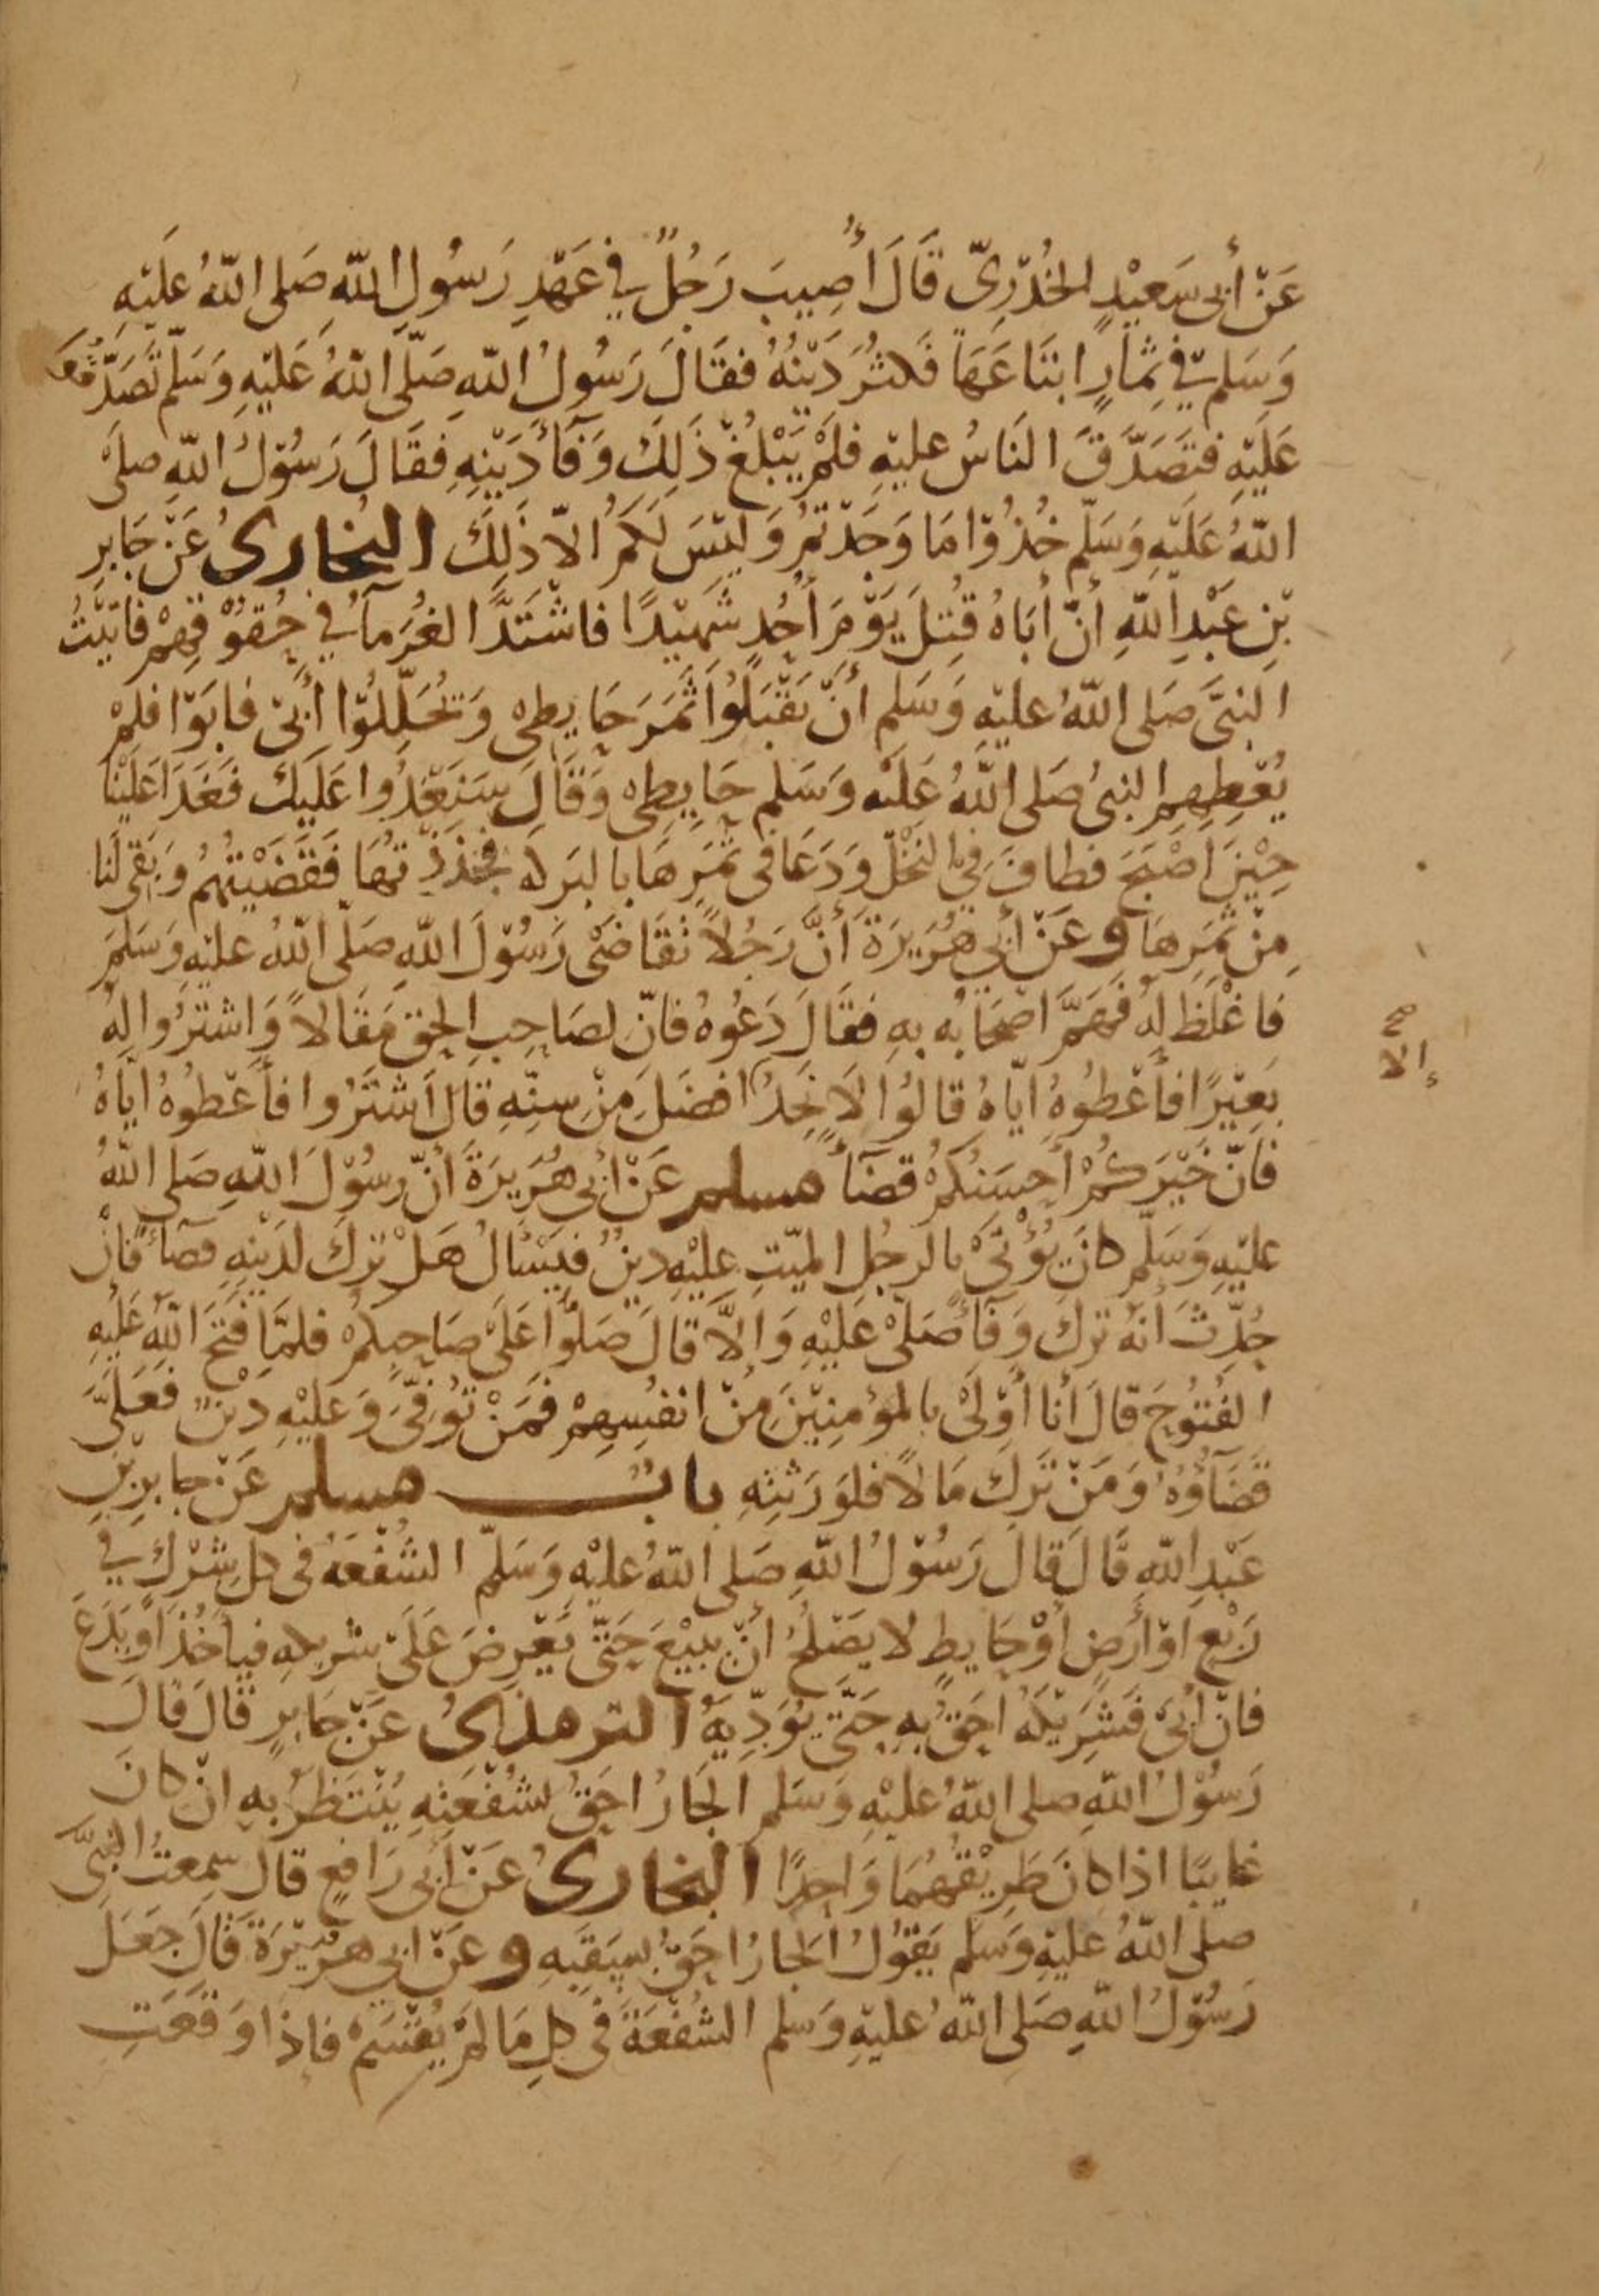 عَنْ أَبِي سَعِيْدٍ الخُدْرِيّ قَالَ أُصِيبَ رَجُلٌ فِي عَهْدِ رَسُولِ اللّهِ صَلى اللّهُ عَلَيْهِ
وَسَلم فِي ثِمَارٍ ابتَاعَهَا فَكثُرَ دَيْنُهُ فقَالَ رَسُولُ اللّهِ صَلّى اللّهُ عَلَيْهِ وَسَلّم تَصَدَّقُوا
عَلَيْهِ فتَصَدَّقَ النَاسُ عليْهِ فلَمْ يَبْلغْ ذَلِكَ وَفَآءَ دَيْنِهِ فَقَالَ رَسُوْلُ اللّهِ صلىَ
اللّهُ عَلَيْهِ وَسَلّم خُذُوْا مَا وَجَدْتمُ وَليْسَ لَكمُ الاّ ذَلِكَ البُخارىُ عَنْ جَابِرِ
بْنِ عَبْدِ اللّهِ أنّ أبَاهُ قُتِلَ يَوْمَ أُحُدٍ شَهِيْدًا فَاشْتَدَّ الغُرَمآءُ فِي حُقوْقِهِمْ فَاتَيْتُ
النبيَّ صَلى اللّهُ عليْهِ وَسَلم أنّ يَقْبَلُوا ثَمَرَ حَايِطِي وَتُحَلِّلُوْا أَبِيْ فابَوْا فلمْ
يُعْطِهِم النبىُ صَلى اللّهُ عَلَيْه وَسَلم حَايِطِي وَقَالَ سَنَغْدُوا عَلَيكَ فَغَدَا عَلَيْنَا
حِيْنَ اصْبَحَ فطافَ فِي النَخْلِ وَدَعَا فى ثمَرِهَا بالبَركه فجَذَذْتهُا فَقَضَيْتُهُمُ وَبَقى لَنا
مِنْ ثمَرِهَا وعَنْ أَبِي هُرَيرَةَ أنَّ رَجُلاً تَقَاضَىْ رَسُوْلَ اللّهِ صَلّى اللّهُ عليْهِ وَسَلمَ
فَاغْلَظ لهُ فَهَمَّ اصْحَابُه بِهِ فقَالَ دَعُوهُ فانّ لصَاحِبِ الحِق مَقَالاً وَاشتَرُوا لهُ
بَعِيْرًا فأعْطُوهُ ايّاهُ قالوُا لاَ نَجِدُ افضَلَ مِنْ سِنّهِ قال اَشتَرُوا فأعْطُوهُ ايَاهُ
صح
إلا
فانّ خَيْرَكمُ أحسَنُكمُ قضَآءً مسلم عَنْ ابِي هُرَيرَةَ أنّ رسُوْلَ اللّهِ صَلى اللّهُ
عليْهِ وَسَلّم كانَ يُؤْتىْ بالرجُلِ الميّتِ عليْهِ دينٌ فيَسْألُ هَلْ تركَ لدَيْنِهِ قضَآءً فَانْ
حُدِّثَ انهُ تركَ وَفَآءً صَلىْ عَلَيْهِ وَإلاَّ قالَ صَلوُّا عَلَى صَاحِبِكمْ فلمَّا فَتَحَ اللّه عَلَيْهِ
الفُتُوحَ قالَ أنا أَوْلَىْ بالمؤمِنِيْنَ مِنْ انفُسِهِمْ فمَنْ تُوُفِّيَ وَعليْهِ دَيْنٌ فعَليَّ
قَضَآؤُهُ وَمَنْ تَركَ مَالاً فلوَرَثتِهِ بابُ مسلم عَنْ جابرِ بْنِ
عَبْدِ اللّهِ قَالَ قالَ رَسُوْلُ اللّهِ صَلى اللّهُ عليْهِ وَسَلّم الشُفْعَهُ فى كلِ شِرْكٍ فِي
رَبْعٍ اوْ أرَضٍ أَوْ حَايطٍ لا يَصْلحُ أنْ يبيْعَ حَتّى يَعْرِضَ عَلَىْ شريكِهِ فيأخُذ اوْ يَدَعَ
فانْ أَبىَ فَشَرِيْكهُ احَقُ بِهِ حَتَّي يُوَدِّيَهُ الترمذىُ عَنْ جَابرٍ قَالَ قَالَ
رَسُوْلُ اللّهِ صلى اللّهُ عليْهِ وَسَلم الجَارُ احَقُ بشُفْعَتِهِ يُنْتَظَرُ بِهِ انْ كانَ
غايبًا اذا كانَ طَرِيْقُهُمَا وَاحِدًا البخارىُ عَنْ أبى رَافعٍ قال سَمِعتُ النبيَّ
صلى اللّهُ عليْهِ وَسَلم يَقوُلُ الجارُ احَقُ بسَقَبِهِ وعَنْ ابِي هرَيْرَةَ قَالَ جَعَلَ
رَسُوْلُ اللّهِ صَلى اللّهُ عليْهِ وَسلم الشُفْعَةَ فى كلِ مَا لمَ يُقْسَمْ فاذا وَقَعَتِ